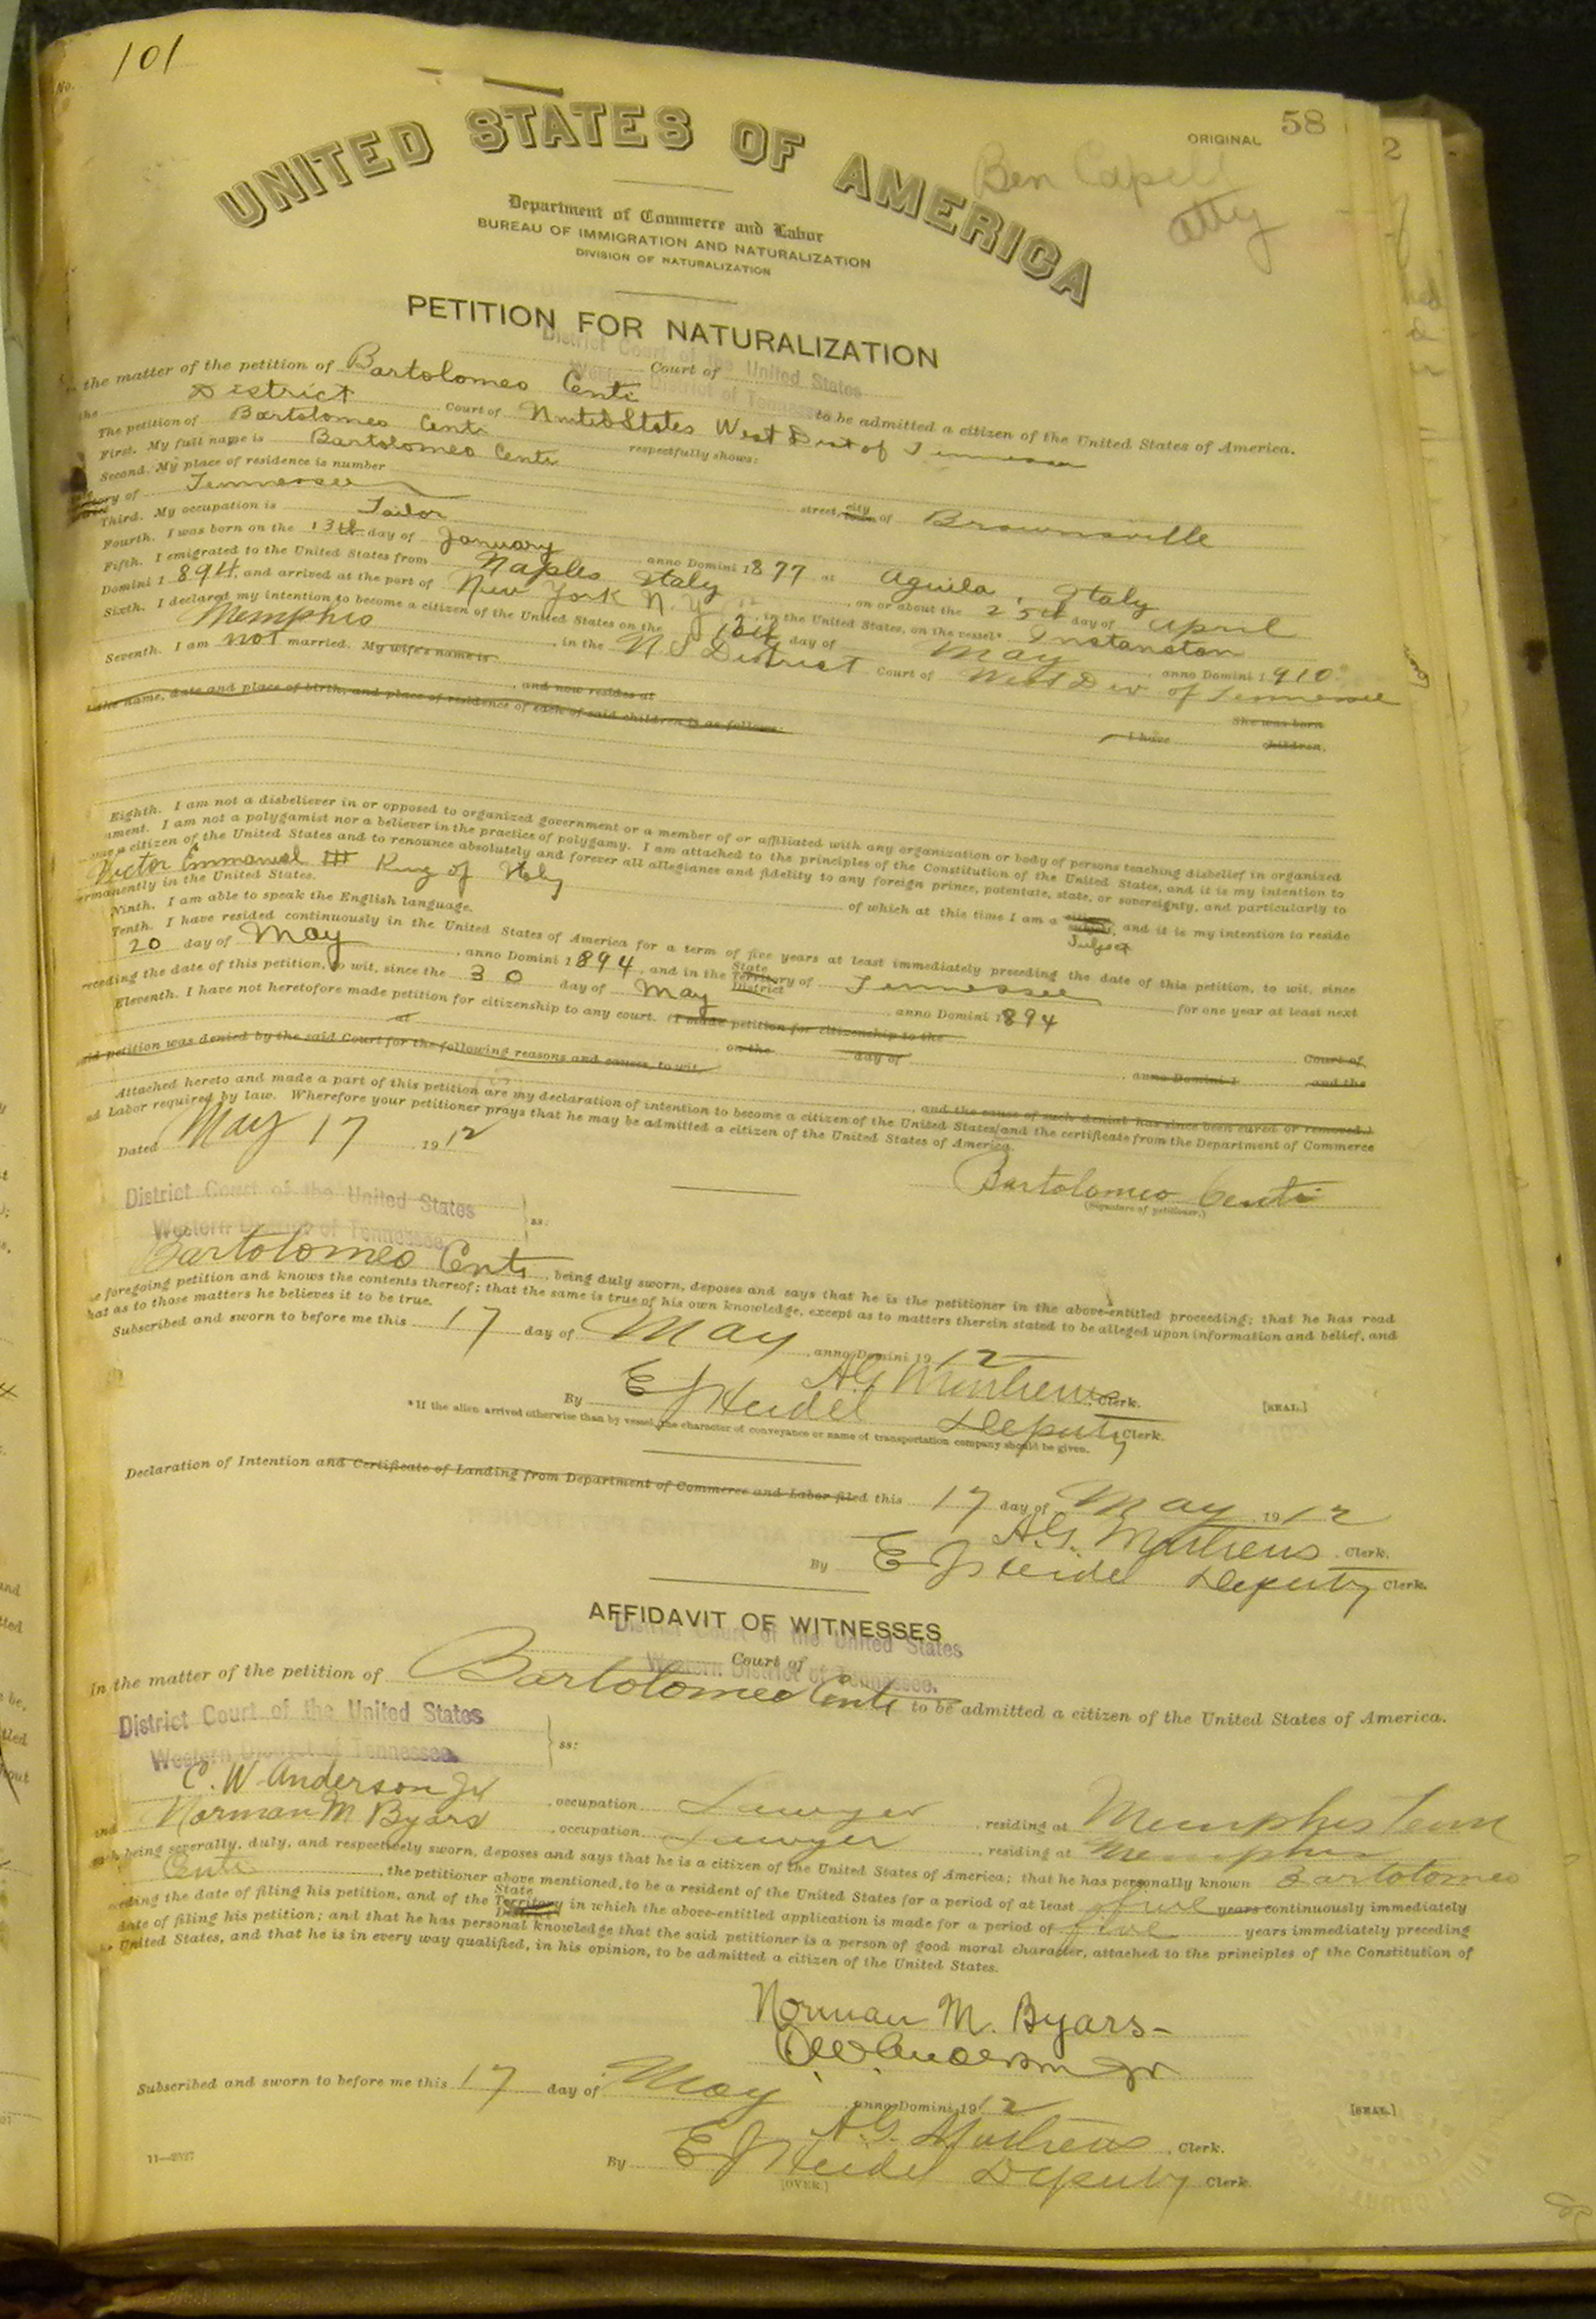 No. 101
58
ORIGINAL
Ben Capell
Atty
UNITED STATES OF AMERICA
Department of Commerce and Labor
BUREAU OF IMMIGRATION AND NATURALIZATION
DIVISION OF NATURALIZATION
PETITION FOR NATURALIZATION
District Court of the United States
Court of
Western District of Tennessee
the matter of the petition of Bartolomeo Centi to be admitted a citizen of the United States of America.
the District Court of United States West Dist of Tennessee
The petition of Bartolomeo Centi respectfully shows:
First. My full name is Bartolomeo Centi
Second. My place of residence is number street, city town of Brownsville
of Tennessee
Third. My occupation is Tailor
Fourth. I was born on the 13th day of January anno Domini 1877 at Aquila, Italy
Fifth. I emigrated to the United States from Naples Italy, on or about the 25th day of April
Domini 1894, and arrived at the port of New York N.Y., in the United States, on the vessel*
Sixth. I declared my intention to become a citizen of the United States on the day of May, anno Domini 1910
Memphis, in the U S District Court of West Div of Tennessee
Seventh. I am not married. My wife's name is She was born
, and now resides at I have children,
the name, date and place of birth, and place of residence of each of said children is as follows:
Eighth. I am not a disbeliever in or opposed to organized government or a member of or affiliated with any organization or body of persons teaching disbelief in organized
ment. I am not a polygamist nor a believer in the practice of polygamy. I am attached to the principles of the Constitution of the United States, and it is my intention to
a citizen of the United States and to renounce absolutely and forever all allegiance and fidelity to any foreign prince, potentate, state, or sovereignty, and particularly to
Victor Emmanuel III King of Italy of which at this time I am a subject, and it is my intention to reside
ermanently in the United States.
Ninth. I am able to speak the English language.
Tenth. I have resided continuously in the United States of America for a term of five years at least immediately preceding the date of this petition, to wit, since
20 day of May, anno Domini 1894, and in the State Territory District of Tennessee for one year at least next
receding the date of this petition, to wit, since the 30 day of May, anno Domini 1894
Eleventh. I have not heretofore made petition for citizenship to any court. (I made petition for citizenship to the Court of
at on the day of anno Domini 1 and the
said petition was denied by the said Court for the following reasons and causes, to wit, and the cause of such denial has since been cured or removed.)
Attached hereto and made a part of this petition are my declaration of intention to become a citizen of the United States and the certificate from the Department of Commerce
nd Labor required by law. Wherefore your petitioner prays that he may be admitted a citizen of the United States of America.
Dated May 17 1912
Bartolomeo Centi
(Signature of petitioner.)
District Court of the United States
Western District of Tennessee ss:
Bartolomeo Centi, being duly sworn, deposes and says that he is the petitioner in the above-entitled proceeding; that he has read
foregoing petition and knows the contents thereof; that the same is true of his own knowledge, except as to matters therein stated to be alleged upon information and belief, and
hat as to those matters he believes it to be true.
Subscribed and sworn to before me this 17 day of May, anno Domini 1912
A G Mathews Clerk.
By E J Heidel Deputy Clerk.
[SEAL.]
*If the alien arrived otherwise than by vessel, the character of conveyance or name of transportation company should be given.
Declaration of Intention and Certificate of Landing from Department of Commerce and Labor filed this 17 day of May 1912
A.G. Mathews, Clerk.
By E J Heidel Deputy Clerk.
AFFIDAVIT OF WITNESSES
District Court of the United States
Court of
Western District of Tennessee.
In the matter of the petition of Bartolomeo Centi to be admitted a citizen of the United States of America.
District Court of the United States
Western District of Tennessee. ss:
C. W. Anderson Jr, occupation Lawyer, residing at Memphis Tenn
and Norman M Byars, occupation Lawyer, residing at Memphis
being severally, duly, and respectively sworn, deposes and says that he is a citizen of the United States of America; that he has personally known Bartolomeo
Centi, the petitioner above mentioned, to be a resident of the United States for a period of at least five years continuously immediately
eding the date of filing his petition, and of the State Territory District in which the above-entitled application is made for a period of five years immediately preceding
date of filing his petition; and that he has personal knowledge that the said petitioner is a person of good moral character, attached to the principles of the Constitution of
United States, and that he is in every way qualified, in his opinion, to be admitted a citizen of the United States.
Norman M. Byars-
C W Anderson Jr
Subscribed and sworn to before me this 17 day of May, anno Domini 1912
[SEAL.]
A.G. Mathews, Clerk.
By E J Heidel Deputy Clerk.
[OVER.]